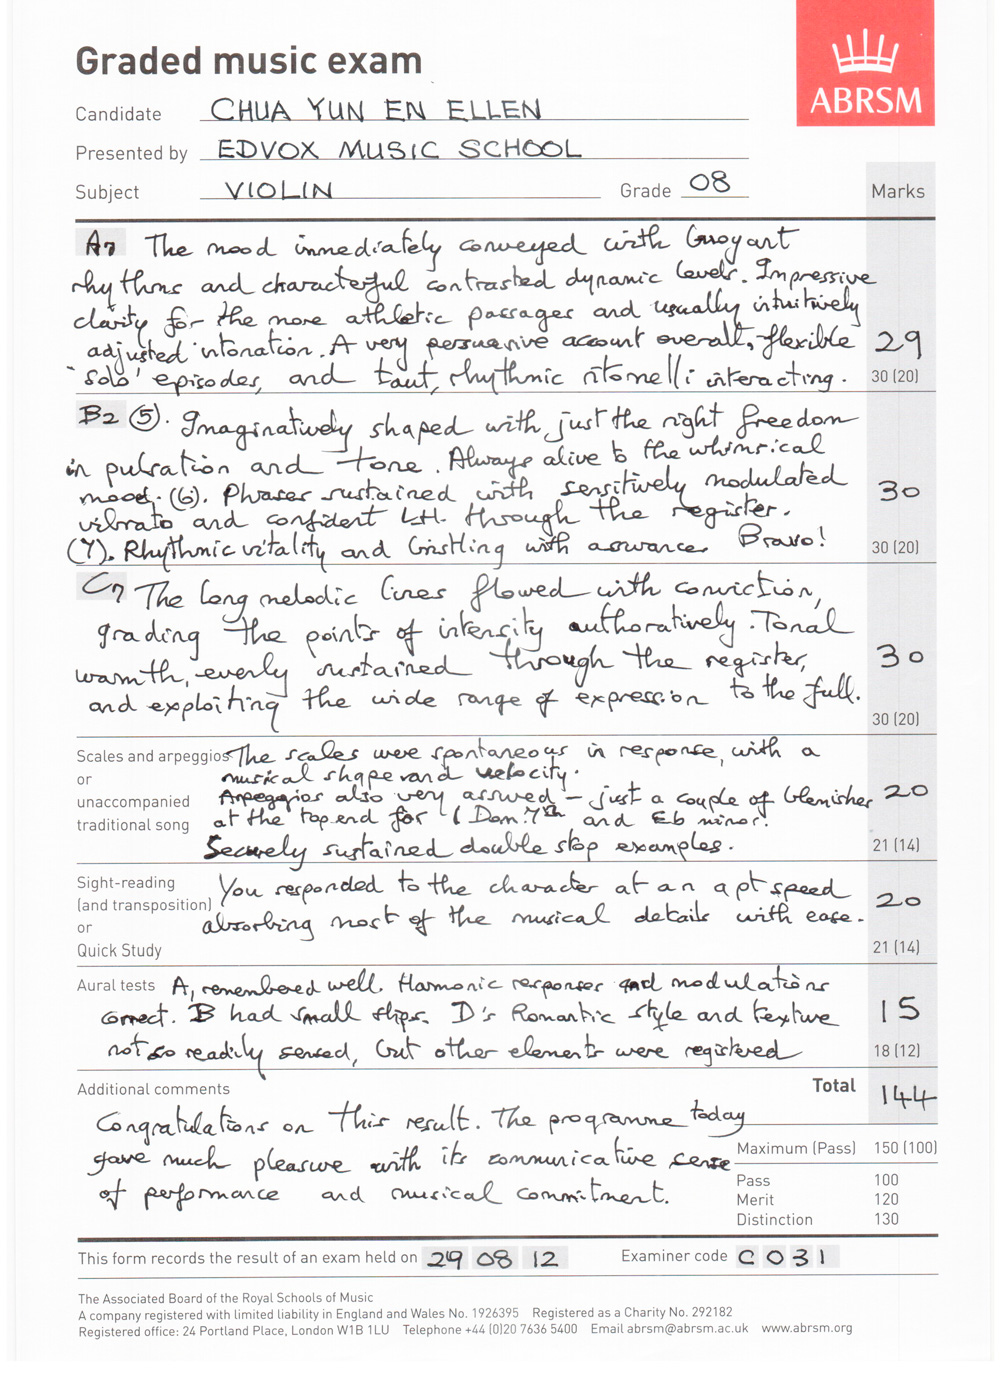 Graded music exam
ABRSM
Candidate CHUA YUN EN ELLEN
Presented by EDVOX MUSIC SCHOOL
Subject VIOLIN Grade 08 Marks
A7 The mood immediately conveyed with buoyant
rhythms and characterful contrasted dynamic levels. Impressive
clarity for the more athletic passages and usually intuitively
adjusted intonation. A very persuasive account overall, flexible
'solo' episodes, and taut, rhythmic ritornelli interacting.
29
30 (20)
B2 (5). Imaginatively shaped with just the right freedom
in pulsation and tone. Always alive to the whimsical
mood. (6). Phrases sustained with sensitively modulated
vibrato and confident L.H. through the register.
(7). Rhythmic vitality and bristling with assurance. Bravo!
30
30 (20)
C7 The long melodic lines flowed with conviction,
grading the points of intensity authoratively. Tonal
warmth, evenly sustained through the register,
and exploiting the wide range of expression to the full.
30
30 (20)
Scales and arpeggios
or
unaccompanied
traditional song
The scales were spontaneous in response, with a
musical shape and velocity.
Arpeggios also very assured – just a couple of blemishes
at the top end for Dom. 7th and Eb minor.
Securely sustained double stop examples.
20
21 (14)
Sight-reading
(and transposition)
or
Quick Study
You responded to the character at an apt speed
absorbing most of the musical details with ease.
20
21 (14)
Aural tests A, remembered well. Harmonic responses and modulations
correct. B had small slips. D's Romantic style and texture
not so readily sensed, but other elements were registered
15
18 (12)
Additional comments
Total 144
Congratulations on this result. The programme today
gave much pleasure with its communicative sense
of performance and musical commitment.
Maximum (Pass) 150 (100)
Pass 100
Merit 120
Distinction 130
This form records the result of an exam held on 29 08 12 Examiner code C 0 3 1
The Associated Board of the Royal Schools of Music
A company registered with limited liability in England and Wales No. 1926395 Registered as a Charity No. 292182
Registered office: 24 Portland Place, London W1B 1LU Telephone +44 (0)20 7636 5400 Email abrsm@abrsm.ac.uk www.abrsm.org